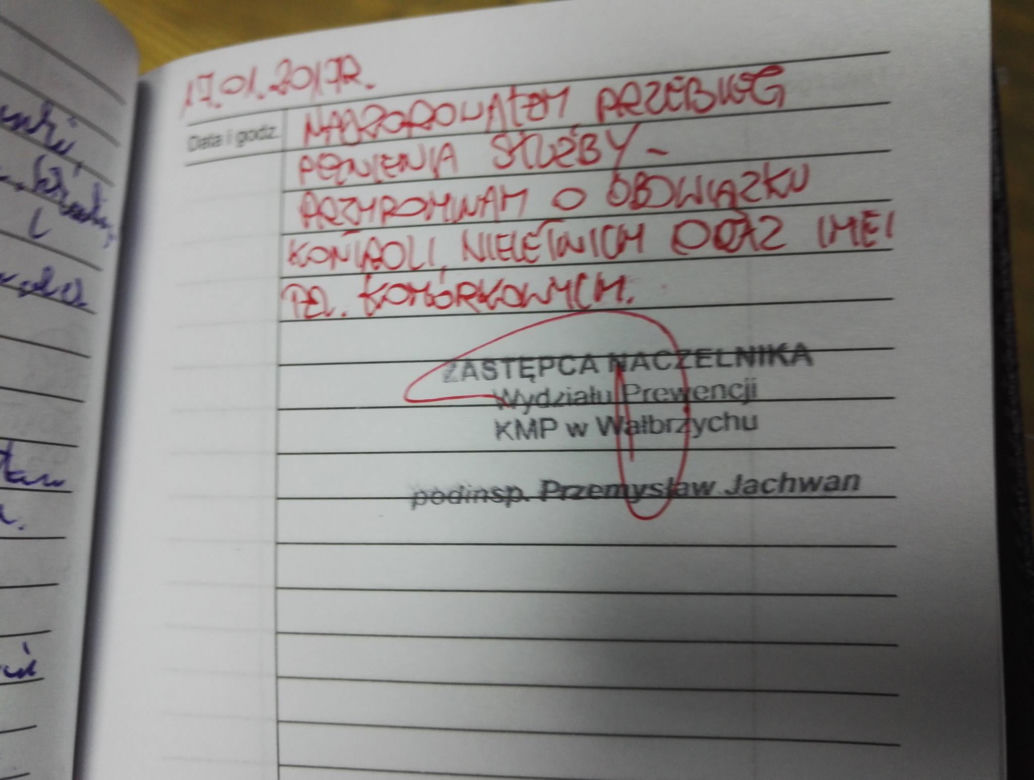 17.01.2017R.
Data i godz.
NADZOROWAŁEM PRZEBIEG
PEŁNIENIA SŁUŻBY -
PRZYPOMINAM O OBOWIĄZKU
KONTROLI NIELETNICH ORAZ IMEI
TEL. KOMÓRKOWYCH.
ZASTĘPCA NACZELNIKA
Wydziału Prewencji
KMP w Wałbrzychu
podinsp. Przemysław Jachwan